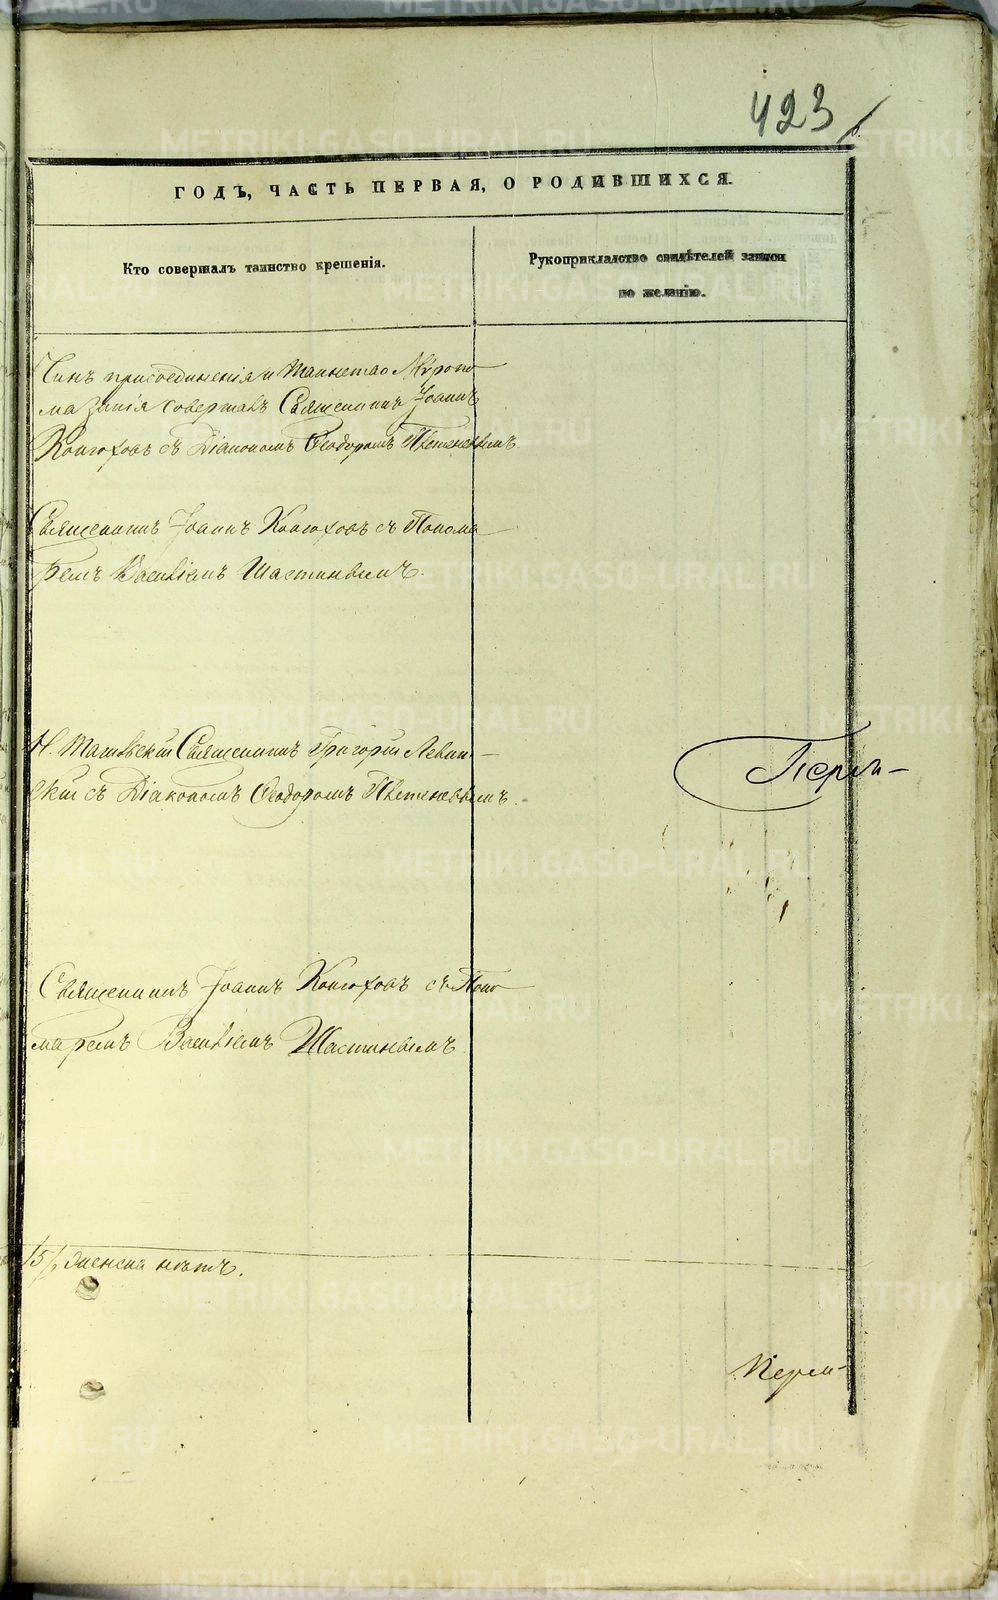 423
ГОДЪ, ЧАСТЬ ПЕРВАЯ, О РОДИВШИХСЯ.
Кто совершалъ таинство крещенія.
Рукоприкладство свидѣтелей записи
по желанію.
Чинъ присоединенія и таинство Мѵропо
мазанія совершалъ Священникъ Іоаннъ
Конюховъ съ Діакономъ Ѳеодоромъ
Священникъ Іоаннъ Конюховъ съ Понома
ремъ Василіемъ Шастинымъ.
Священникъ Григорій Леван-
скій съ Діакономъ Ѳеодоромъ
Перм-
Священникъ Іоаннъ Конюховъ съ Поно
маремъ Василіемъ Шастинымъ
нѣтъ.
Перм-
METRIKI.GASO-URAL.RU